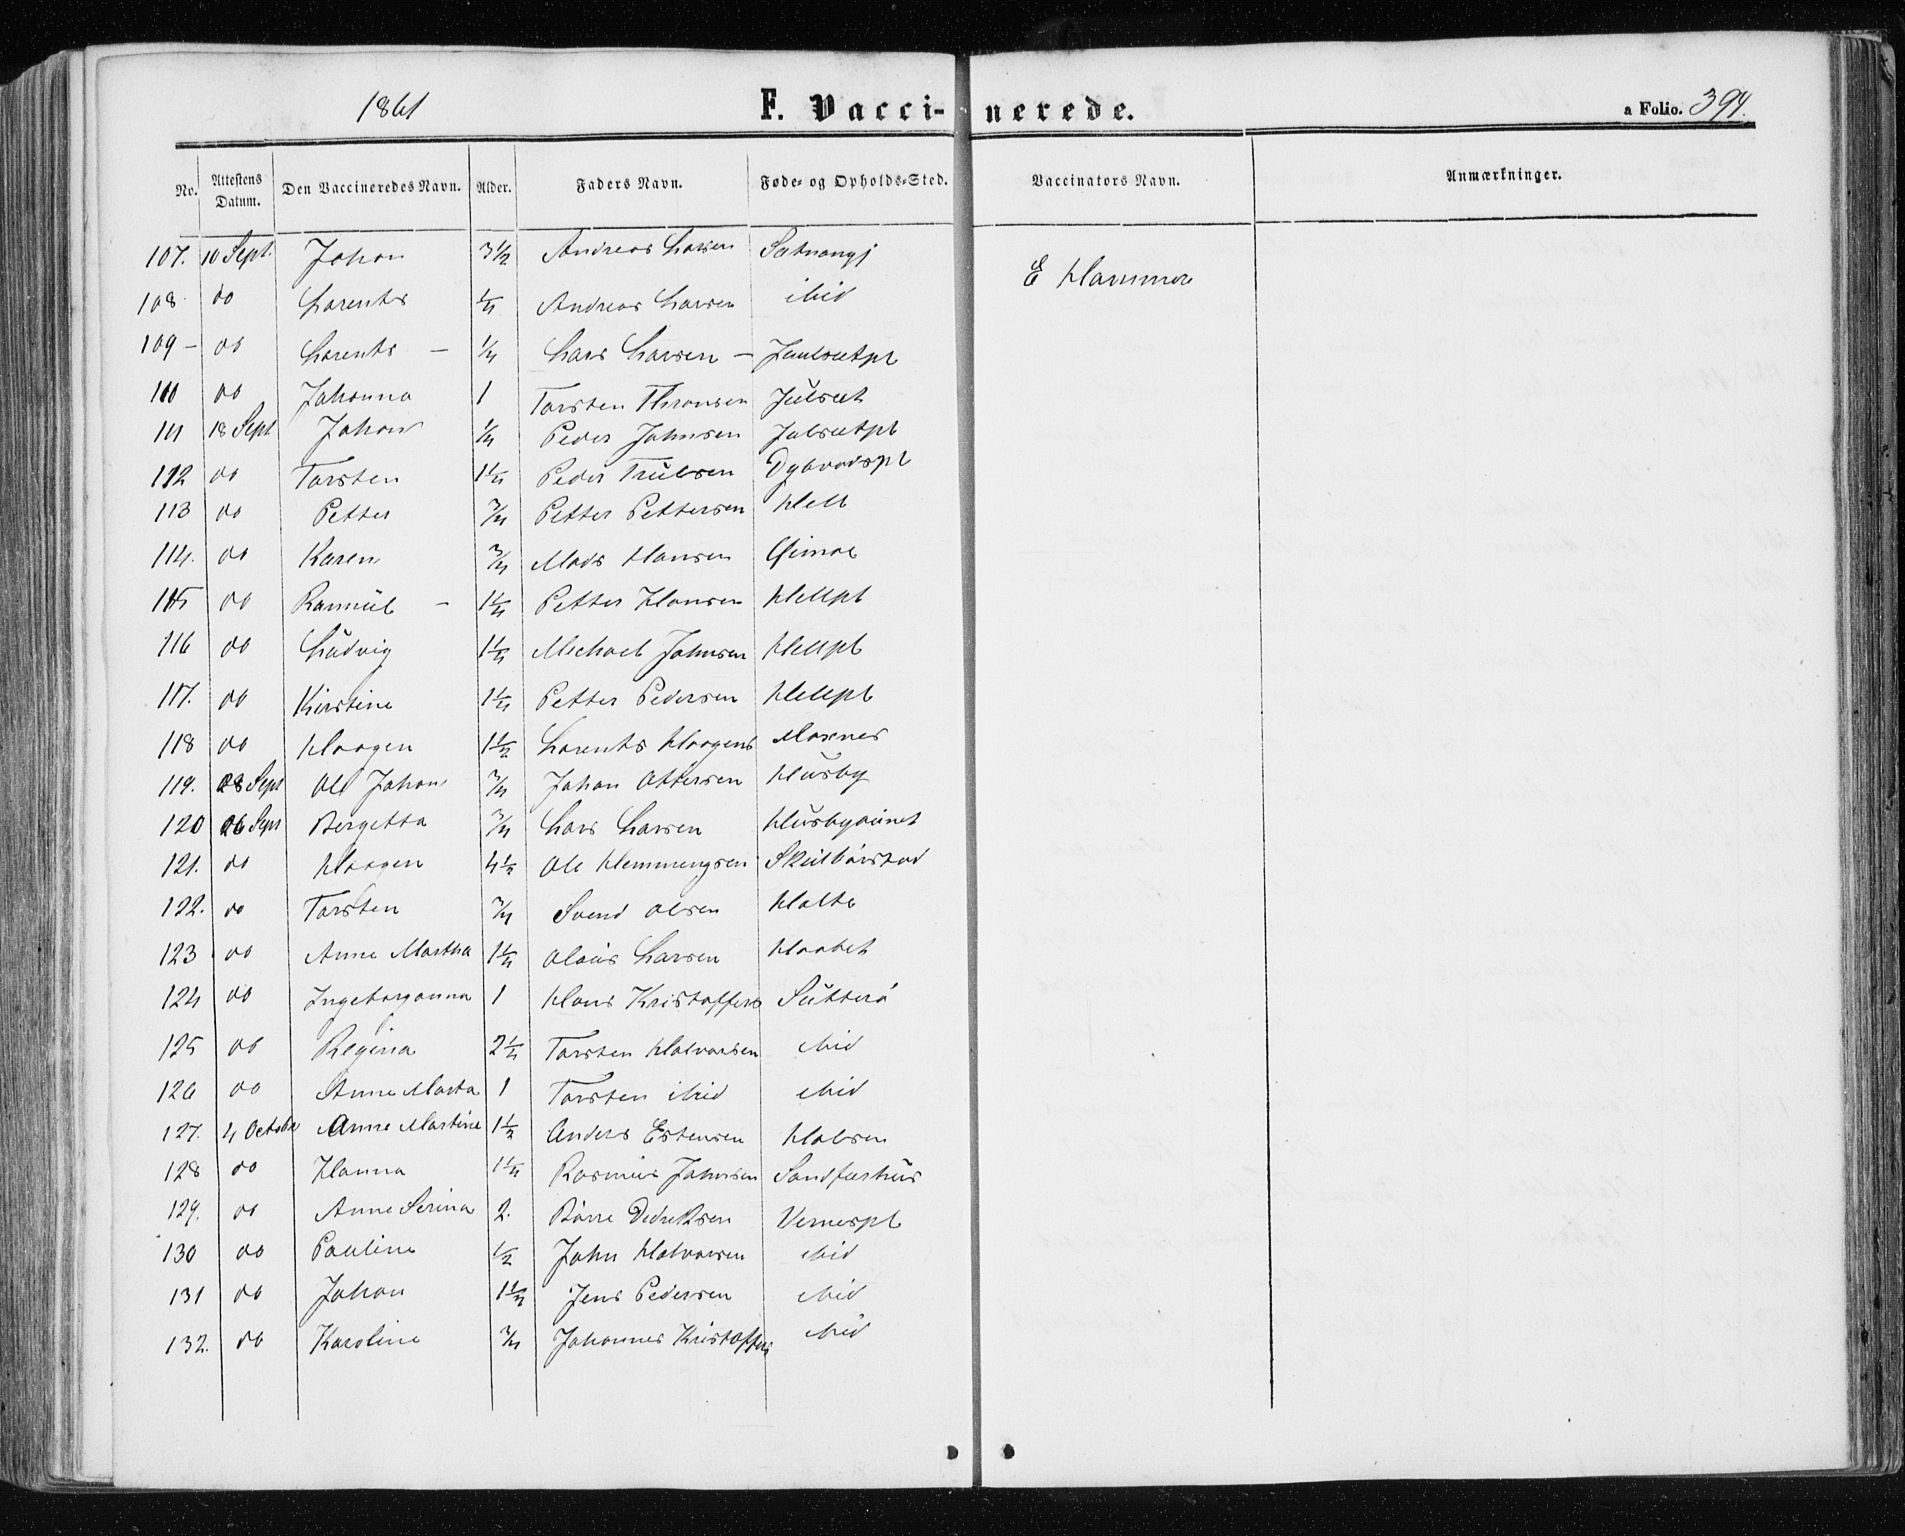 1861 F. Vaccinerede. a Folio. 394.
No. Attestens Datum. Den Vaccineredes Navn. Alder. Faders Navn. Føde- og Opholds-Sted. Vaccinators Navn. Anmærkninger.
107. 10 Sept. Johan 3 1/2 Andreas Larsen
E Hammer
108 do Lorents 1/4 Andreas Larsen ibid
109 – do Lorents – 1/4 Lars Larsen –
110 do Johanna 1 Torsten Thronsen Julset
111 18 Sept Johan 1/4 Peder Johnsen Julsetpl
112 do Torsten 1 1/4 Peder Trulsen Dybvadspl
113 do Petter 3/4 Petter Pettersen Hell
114. do Karen 3/4 Mads Hansen Gimse
115 do – 1 1/4 Petter Hansen Hellpl
116 do Ludvig 1 1/4 Michael Johnsen Hellpl
117. do Kirstine 1 1/4 Petter Pedersen Hellpl
118 do Haagen 1 1/2 Lorents Haagens Moxnes
119. 28 Sept Ole Johan 3/4 Johan Ottersen Husby
120 26 Sept Bergetta 3/4 Lars Larsen Husbyaunet
121. do Haagen 4 1/2 Ole Hemmingsen Skulbørstad
122. do Torsten 3/4 Svend Olsen
123 do Anne Martha 1 1/4 Olaus Larsen
124 do Ingeborganna 1 Hans Kristoffers Sutterø
125 do Regina 2 1/4 Torsten Halvorsen ibid
126 do Anne Marta 1 Torsten ibid ibid
127. 4 October Anne Martine 1 1/2 Anders Estensen Halsen
128 do Hanna 1 1/4 Rasmus Johnsen Sandfærhus
129. do Anne Serina 2. Børre Dedriksen Vernespl
130 do Pauline 1/2 John Halvorsen ibid
131 do Johan 1 1/4 Jens Pedersen ibid
132. do Karoline 3/4 Johannes Kristoffers ibid